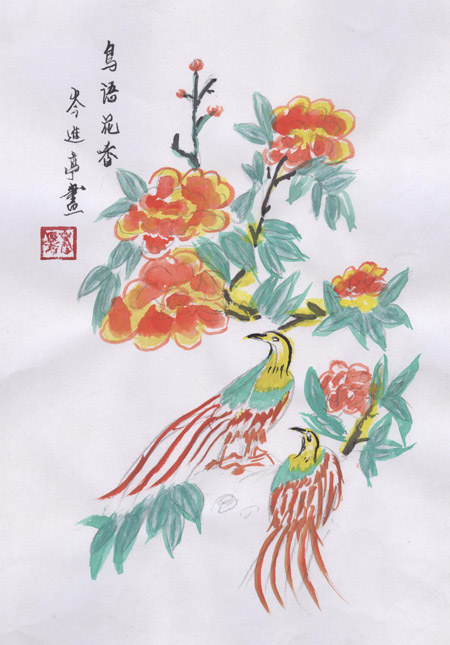 鳥语花香
岑進亭畫